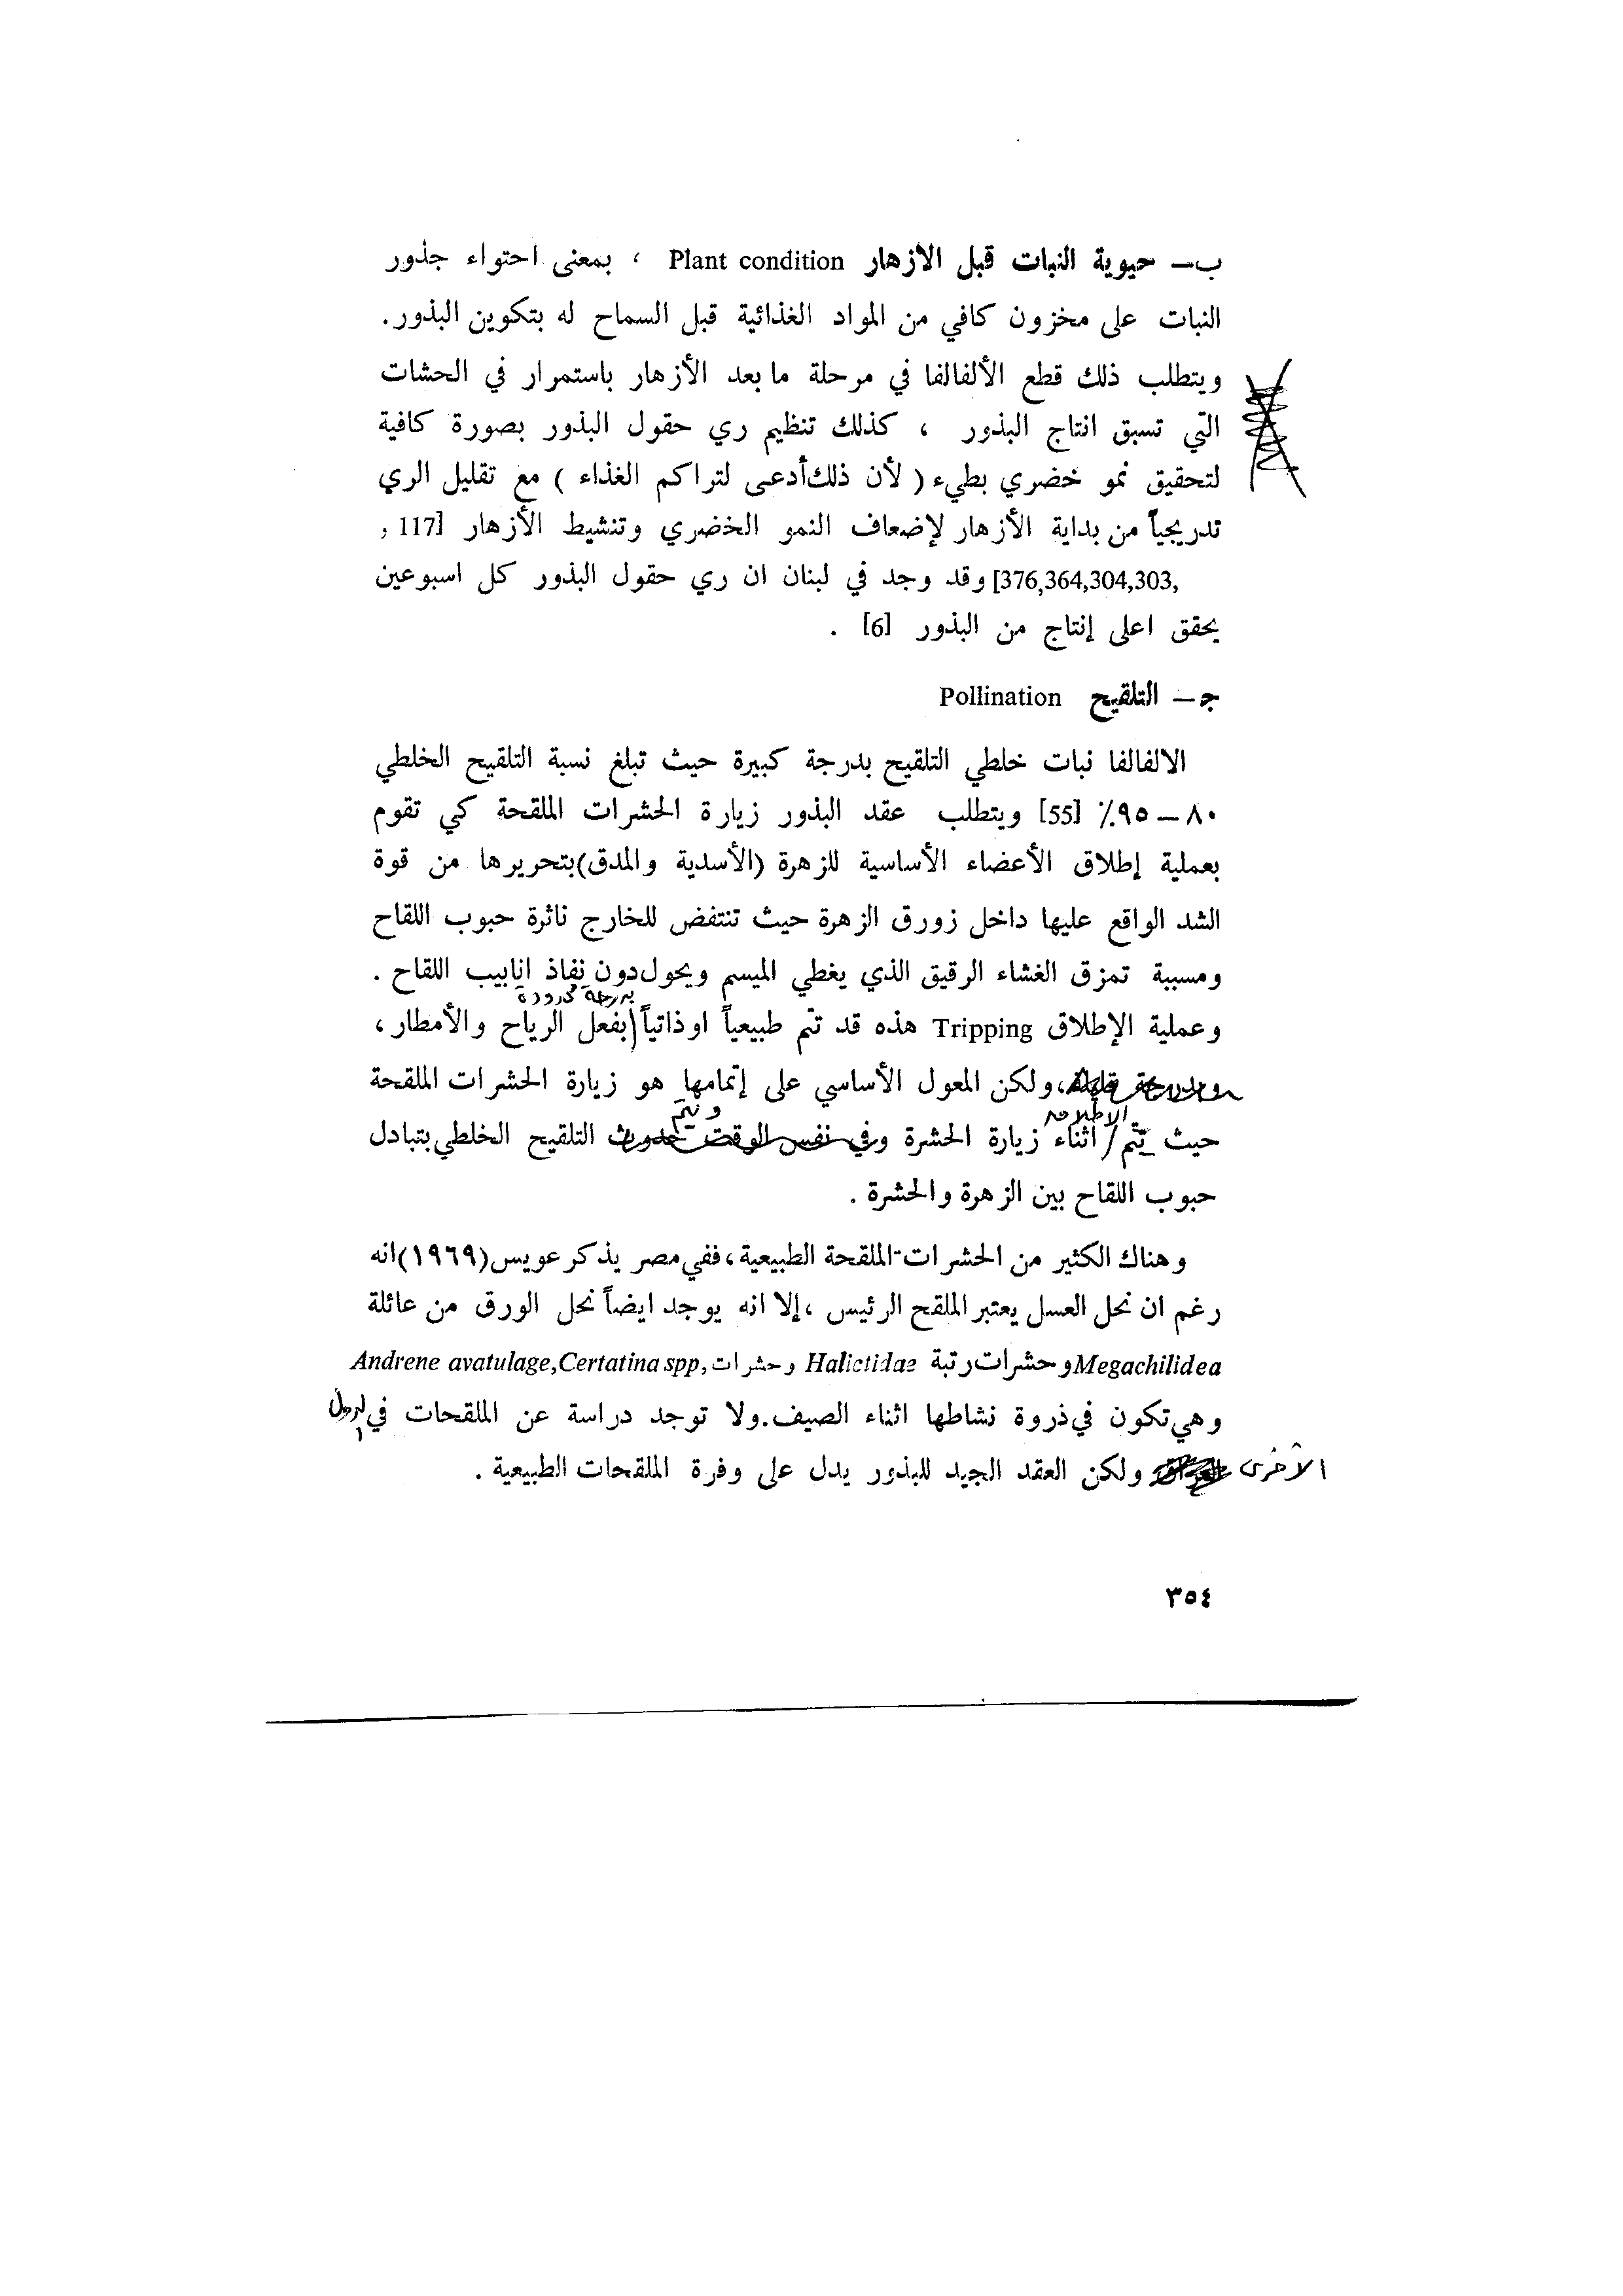 ب— حيوية النبات قبل الازهار Plant condition ، بمعنى احتواء جذور
النبات على مخزون كافي من المواد الغذائية قبل السماح له بتكوين البذور.
ويتطلب ذلك قطع الألفالفا في مرحلة ما بعد الأزهار باستمرار في الحشات
التي تسبق انتاج البذور ، كذلك تنظيم ري حقول البذور بصورة كافية
لتحقيق نمو خضري بطيء ( لأن ذلك أدعى لتراكم الغذاء ) مع تقليل الري
تدريجياً من بداية الأزهار لإضعاف النمو الخضري وتنشيط الأزهار [117 ,
376,364,304,303,] وقد وجد في لبنان ان ري حقول البذور كل اسبوعين
يحقق اعلى إنتاج من البذور [6] .
جـ — التلقيح Pollination
الالفالفا نبات خلطي التلقيح بدرجة كبيرة حيث تبلغ نسبة التلقيح الخلطي
٨٠ — ٩٥٪ [55] ويتطلب عقد البذور زيارة الحشرات الملقحة كي تقوم
بعملية إطلاق الأعضاء الأساسية للزهرة (الأسدية والمدق) بتحريرها من قوة
الشد الواقع عليها داخل زورق الزهرة حيث تنتفض للخارج ناثرة حبوب اللقاح
ومسببة تمزق الغشاء الرقيق الذي يغطي الميسم ويحول دون نفاذ انابيب اللقاح .
بدرجة محدودة
وعملية الإطلاق Tripping هذه قد تتم طبيعياً او ذاتياً بفعل الرياح والأمطار ،
وبدرجة قليلة ، ولكن المعول الأساسي على إتمامها هو زيارة الحشرات الملقحة
الإطلاق ويتم
حيث يتم اثناء زيارة الحشرة وفي نفس الوقت حدوث التلقيح الخلطي بتبادل
حبوب اللقاح بين الزهرة والحشرة .
وهناك الكثير من الحشرات الملقحة الطبيعية ، ففي مصر يذكر عويس (١٩٦٩) انه
رغم ان نحل العسل يعتبر الملقح الرئيس ، إلا انه يوجد ايضاً نحل الورق من عائلة
Megachilidea وحشرات رتبة Halictidae وحشرات Andrene avatulage,Certatina spp,
وهي تكون في ذروة نشاطها اثناء الصيف . ولا توجد دراسة عن الملقحات في الدول
الأخرى العراق ولكن العقد الجيد للبذور يدل على وفرة الملقحات الطبيعية .
٣٥٤